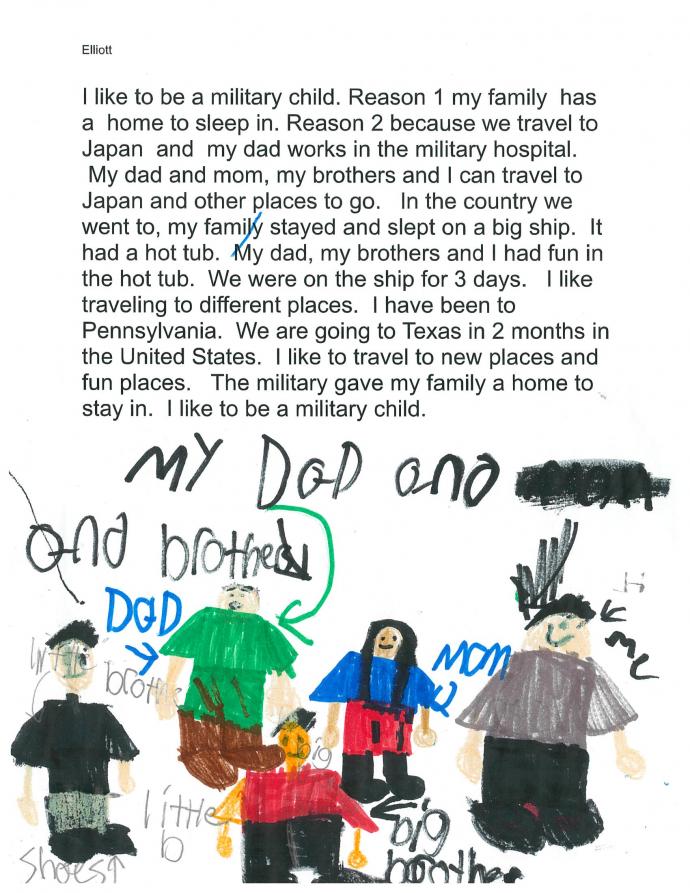 Elliott
I like to be a military child. Reason 1 my family has
a home to sleep in. Reason 2 because we travel to
Japan and my dad works in the military hospital.
My dad and mom, my brothers and I can travel to
Japan and other places to go. In the country we
went to, my family stayed and slept on a big ship. It
had a hot tub. My dad, my brothers and I had fun in
the hot tub. We were on the ship for 3 days. I like
traveling to different places. I have been to
Pennsylvania. We are going to Texas in 2 months in
the United States. I like to travel to new places and
fun places. The military gave my family a home to
stay in. I like to be a military child.
MY DaD and
and brothers
DaD
MOM
me
little
brothe
big
little
b
big
brother
shoes